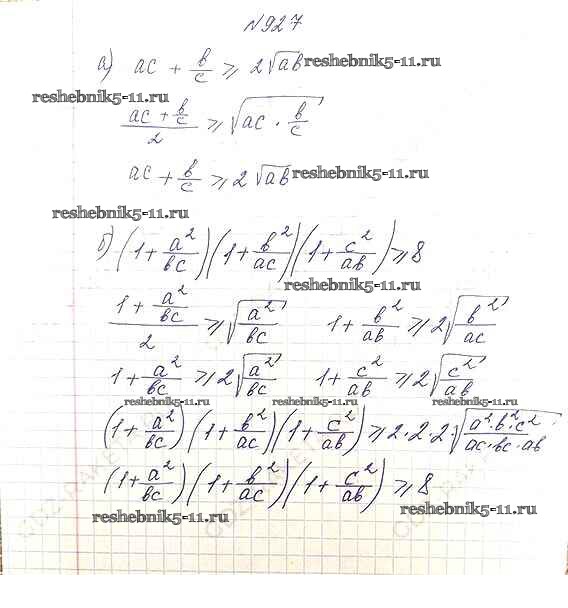 №927
а) ac + b/c ⩾ 2√ab reshebnik5-11.ru
reshebnik5-11.ru
(ac + b/c)/2 ⩾ √(ac · b/c)
ac + b/c ⩾ 2√ab reshebnik5-11.ru
reshebnik5-11.ru
б) (1 + a²/bc)(1 + b²/ac)(1 + c²/ab) ⩾ 8
reshebnik5-11.ru
(1 + a²/bc)/2 ⩾ √(a²/bc) 1 + b²/ab ⩾ 2√(b²/ac)
1 + a²/bc ⩾ 2√(a²/bc) 1 + c²/ab ⩾ 2√(c²/ab)
reshebnik5-11.ru reshebnik5-11.ru reshebnik5-11.ru
(1 + a²/bc)(1 + b²/ac)(1 + c²/ab) ⩾ 2·2·2·√(a²·b²·c²/ac·bc·ab)
(1 + a²/bc)(1 + b²/ac)(1 + c²/ab) ⩾ 8
reshebnik5-11.ru reshebnik5-11.ru